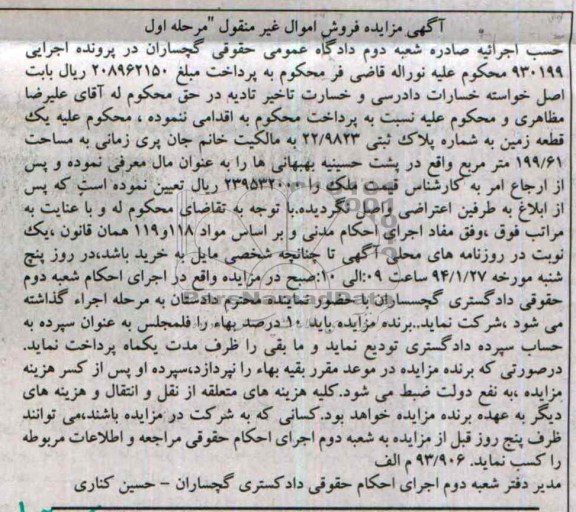 آگهی مزایده فروش اموال غیر منقول "مرحله اول
حسب اجرائیه صادره شعبه دوم دادگاه عمومی حقوقی گچساران در پرونده اجرایی
۹۳۰۱۹۹ محکوم علیه نوراله قاضی فر محکوم به پرداخت مبلغ ۲۰۸۹۶۲۱۵۰ ریال بابت
اصل خواسته خسارات دادرسی و خسارت تاخیر تادیه در حق محکوم له آقای علیرضا
مظاهری و محکوم علیه نسبت به پرداخت محکوم به اقدامی ننموده ، محکوم علیه یک
قطعه زمین به شماره پلاک ثبتی ۲۲/۹۸۲۳ به مالکیت خانم جان پری زمانی به مساحت
۱۹۹/۶۱ متر مربع واقع در پشت حسینیه بهبهانی ها را به عنوان مال معرفی نموده و پس
از ارجاع امر به کارشناس قیمت ملک را ریال تعیین نموده است که پس
از ابلاغ به طرفین اعتراضی نگردیده.با توجه به تقاضای محکوم له و با عنایت به
مراتب فوق ،وفق مفاد اجرای احکام مدنی و بر اساس مواد ۱۱۸و۱۱۹ همان قانون ،یک
نوبت در روزنامه های محلی آگهی تا چنانچه شخصی مایل به خرید باشد،در روز پنج
شنبه مورخه ۹۴/۱/۲۷ ساعت ۰۹:الی ۱۰:صبح در مزایده واقع در اجرای احکام شعبه دوم
حقوقی دادگستری گچسساران با حضور نماینده محترم دادستان به مرحله اجراء گذاشته
می شود ،شرکت نماید..برنده مزایده باید ۱۰ درصد بهاء را فلمجلس به عنوان سپرده به
حساب سپرده دادگستری تودیع نماید و ما بقی را ظرف مدت یکماه پرداخت نماید.
درصورتی که برنده مزایده در موعد مقرر بقیه بهاء را نپردازد،سپرده او پس از کسر هزینه
مزایده ،به نفع دولت ضبط می شود.کلیه هزینه های متعلقه از نقل و انتقال و هزینه های
دیگر به عهده برنده مزایده خواهد بود.کسانی که به شرکت در مزایده باشند،می توانند
ظرف پنج روز قبل از مزایده به شعبه دوم اجرای احکام حقوقی مراجعه و اطلاعات مربوطه
را کسب نماید. ۹۳/۹۰۶ م الف
مدیر دفتر شعبه دوم اجرای احکام حقوقی دادکستری گچساران – حسین کناری